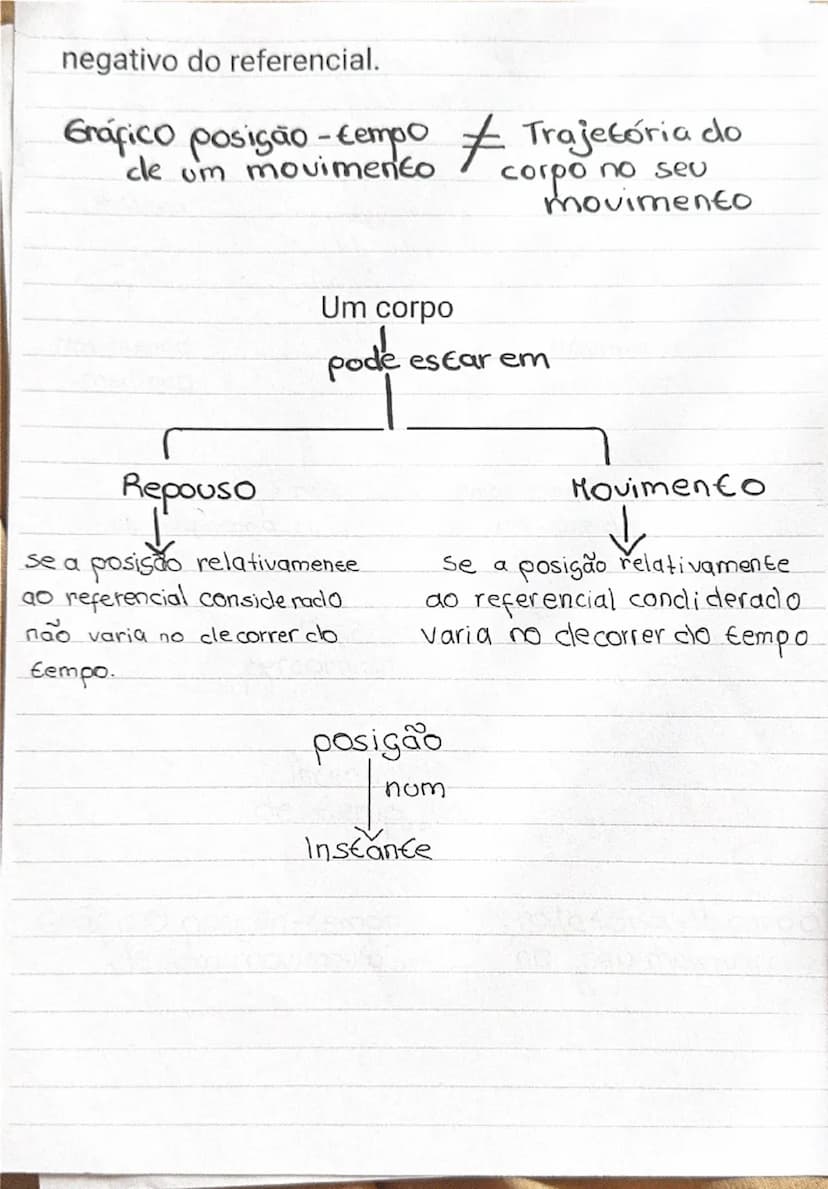 negativo do referencial.
Gráfico posição-tempo ≠ Trajetória do
de um movimento corpo no seu
movimento
Um corpo
pode estar em
Repouso Movimento
se a posisão relativamente se a posição relativamente
ao referencial considerado ao referencial condiderado
não varia no decorrer do varia no decorrer do tempo
tempo.
posição
num
Instante